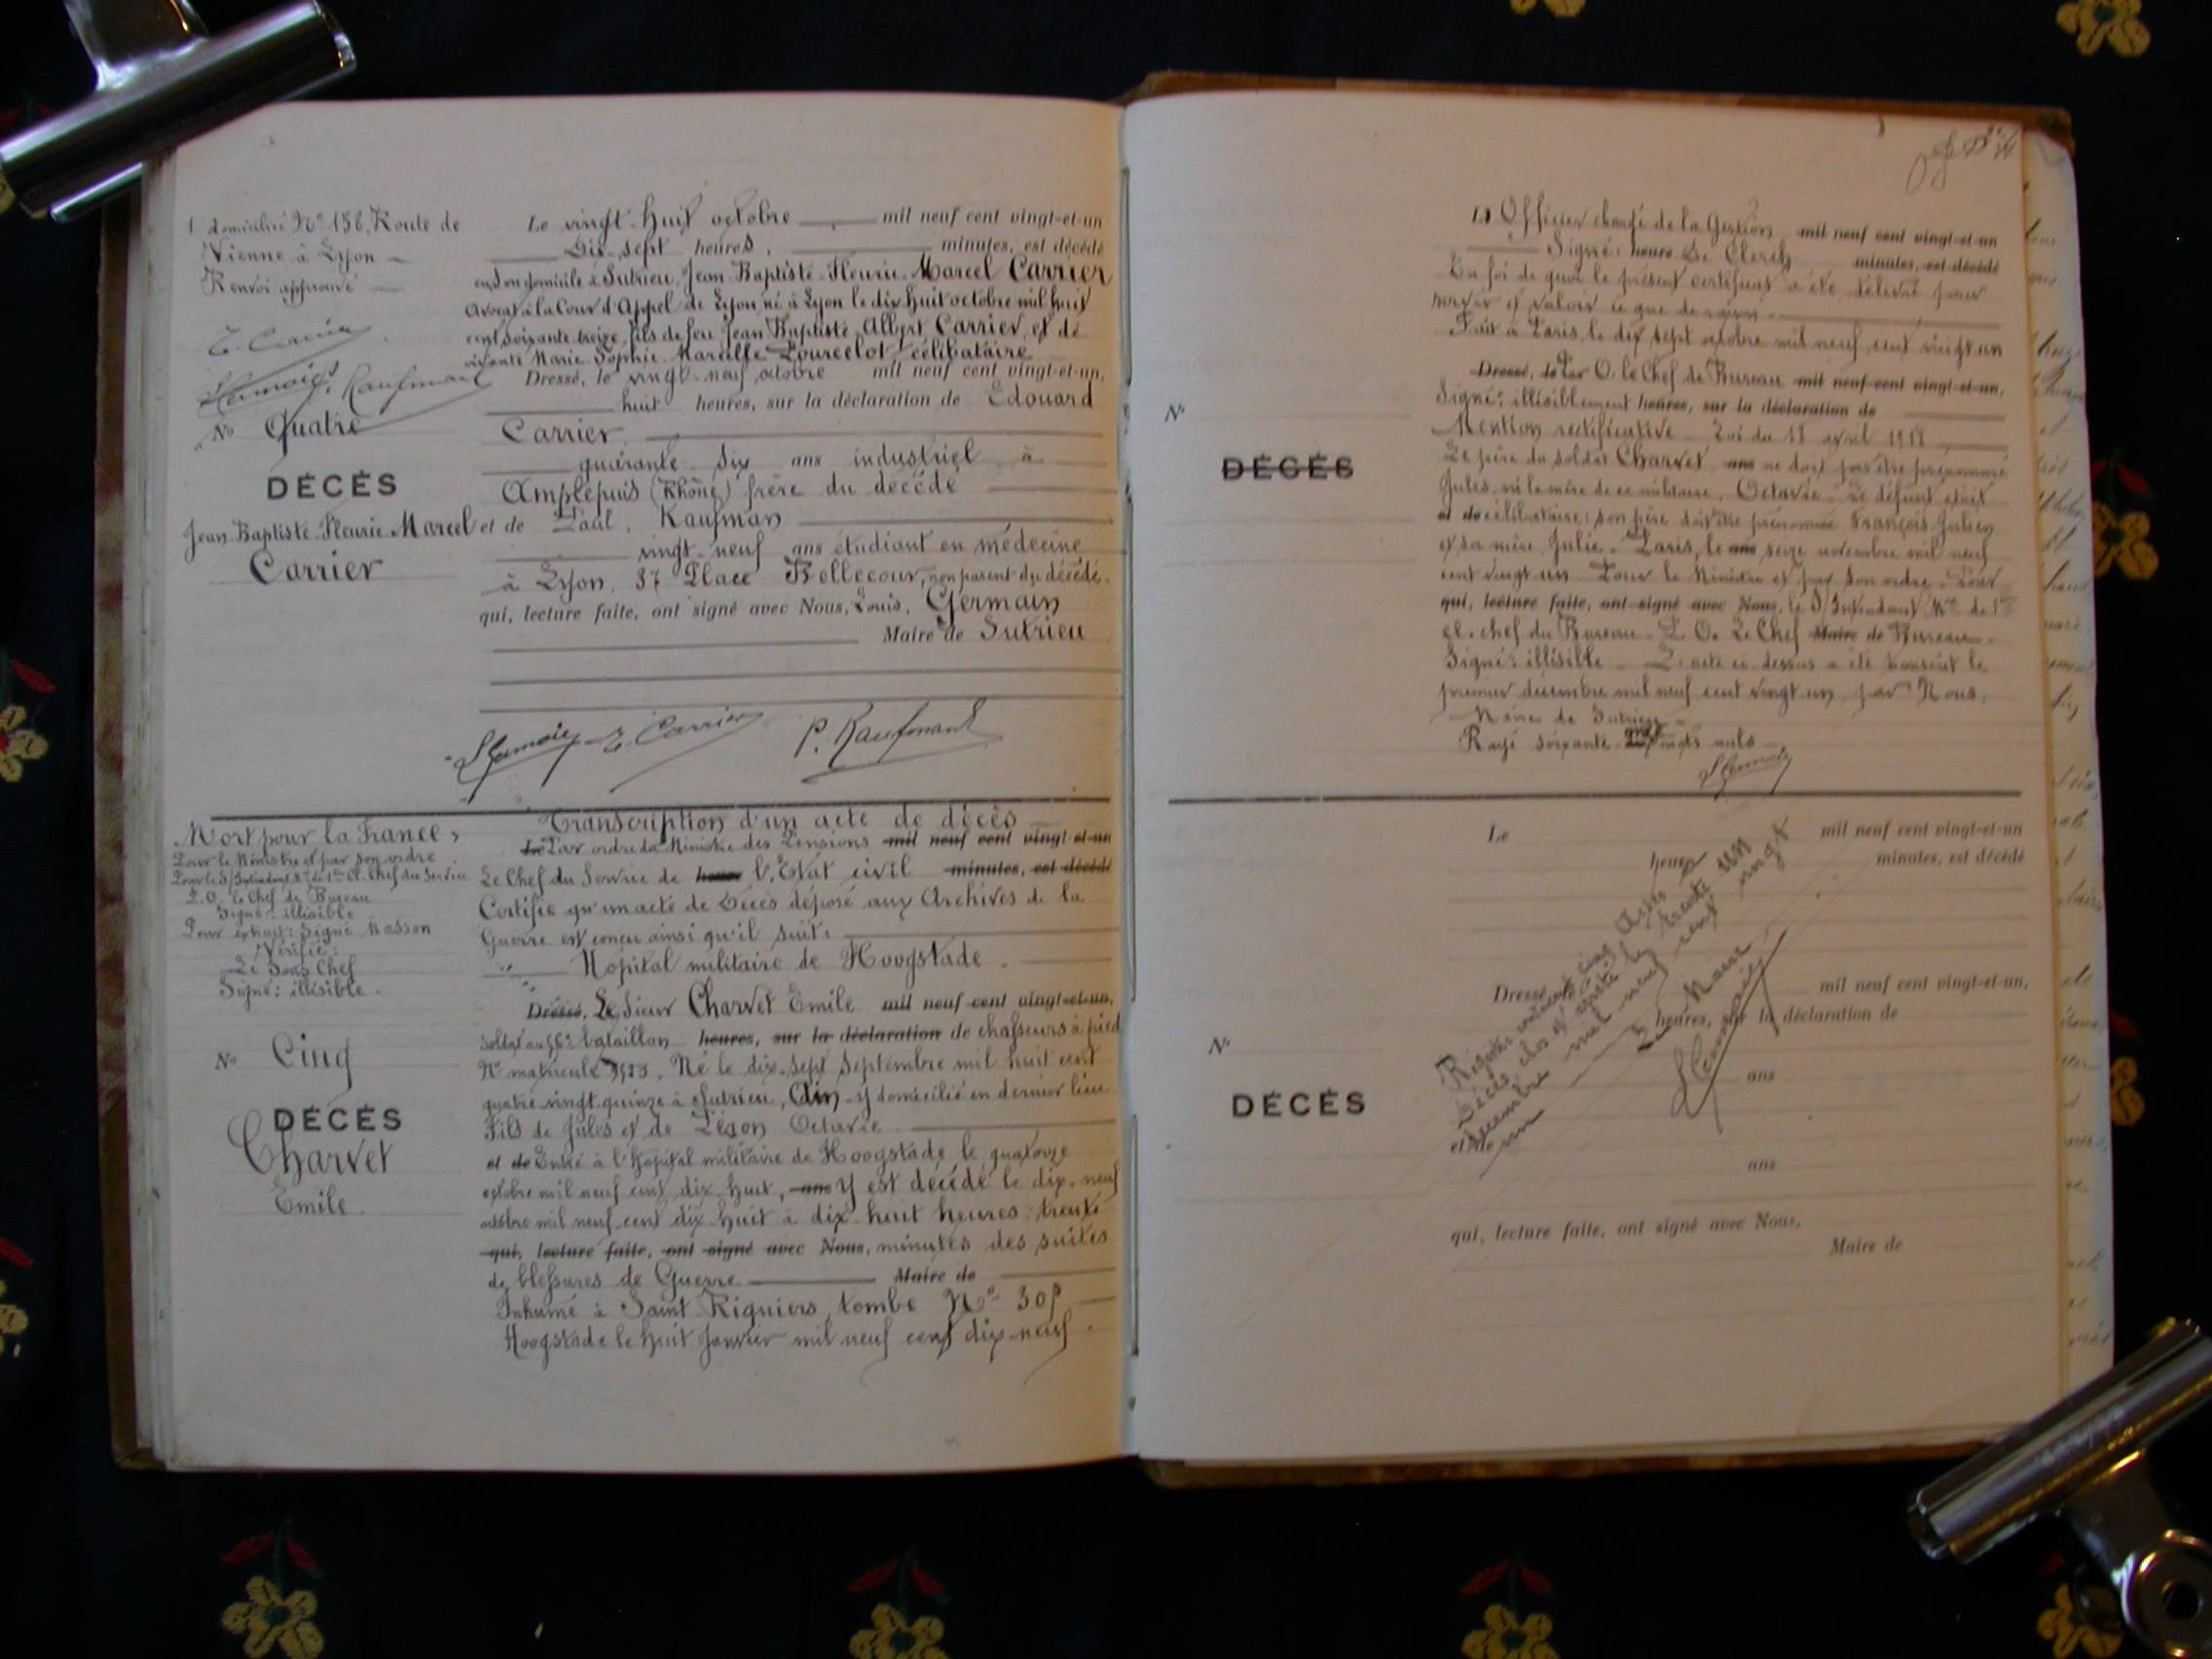 domicilié N° 158, Route de
Vienne à Lyon
Renvoi approuvé
E. Carrier
Kaufmant
N° Quatre
DÉCÈS
Jean-Baptiste-Fleurie-Marcel
Carrier
Le vingt-huit octobre mil neuf cent vingt-et-un
Dix-sept heures, minutes, est décédé
en son domicile à Sutrieu, Jean-Baptiste-Fleurie-Marcel Carrier
Avocat à la Cour d'Appel de Lyon né à Lyon le dix huit octobre mil huit
cent soixante treize, fils de feu Jean Baptiste Albert Carrier, et de
vivante Marie Sophie Marcelle Pourcelot, célibataire
Dressé, le vingt-neuf octobre mil neuf cent vingt-et-un,
huit heures, sur la déclaration de Edouard
Carrier
quarante six ans industriel à
Amplepuis (Rhône) frère du décédé
et de Paul, Kaufman
vingt-neuf ans étudiant en médecine
à Lyon, 37 Place Bellecour, non parent du décédé.
qui, lecture faite, ont signé avec Nous, Louis, Germain
Maire de Sutrieu
E. Carrier P. Kaufmant
Mort pour la France,
Pour le Ministre et par son ordre
Pour le S/Intendant Mre de 1re Cl. Chef du Service
P.O. le Chef de Bureau
Signé: illisible
Pour extrait: Signé Masson
Vérifié:
Le Sous Chef
Signé: illisible
N° Cinq
DÉCÈS
Charvet
Emile
Transcription d'un acte de décès
Le Par ordre du Ministre des Pensions mil neuf cent vingt-et-un
Le Chef du Service de heures l'Etat civil minutes, est décédé
Certifie qu'un acte de Décès déposé aux Archives de la
Guerre est conçu ainsi qu'il suit:
Hôpital militaire de Hoogstade
Dressé, Le Sieur Charvet Emile mil neuf cent vingt-et-un,
Soldat au 56e bataillon heures, sur la déclaration de chasseurs à pied
N° matricule Né le dix-sept Septembre mil huit cent
quatre-vingt-quinze à Sutrieu, Ain, y domicilié en dernier lieu
Fils de Jules et de Octavie
et de Entré à l'hôpital militaire de Hoogstade le quatorze
octobre mil neuf cent dix-huit, ans y est décédé le dix-neuf
octobre mil neuf cent dix-huit à dix-huit heures: trente
qui, lecture faite, ont signé avec Nous, minutes des suites
de blessures de Guerre Maire de
Inhumé à Saint Riquiers, tombe N°
Hoogstade le huit Janvier mil neuf cent dix-neuf
L'Officier chargé de la Gestion mil neuf cent vingt-et-un
Signé: heures De Clerck minutes, est décédé
En foi de quoi le présent certificat a été délivré pour
servir et valoir ce que de raison.
Fait à Paris, le dix sept octobre mil neuf cent vingt un
Dressé, le Par O. le Chef de Bureau mil neuf cent vingt-et-un,
Signé: illisiblement heures, sur la déclaration de
Mention rectificative Loi du 18 avril 1918
Le père du soldat Charvet ans ne doit pas être prénommé
Jules, ni la mère de ce militaire, Octavie. Le défunt était
et de célibataire; son père doit être prénommé François Julien
et sa mère Julie. Paris, le ans seize novembre mil neuf
cent vingt un. Pour le Ministre et par son ordre. Pour
qui, lecture faite, ont signé avec Nous, le S/Intendant Mre de 1re
cl. chef du Bureau. P.O. Le Chef Maire de Bureau.
Signé: illisible. L'acte ci-dessus a été transcrit le
premier décembre mil neuf cent vingt un, par Nous,
Maire de Sutrieu
Rayé soixante mots nuls
N°
DÉCÈS
Le mil neuf cent vingt-et-un
heures minutes, est décédé
Dressé, mil neuf cent vingt-et-un,
heures, sur la déclaration de
ans
et de
ans
qui, lecture faite, ont signé avec Nous,
Maire de
N°
DÉCÈS
Registre contenant cinq Actes de
Décès, clos et arrêté le trente un
décembre mil neuf cent vingt
un
Le Maire